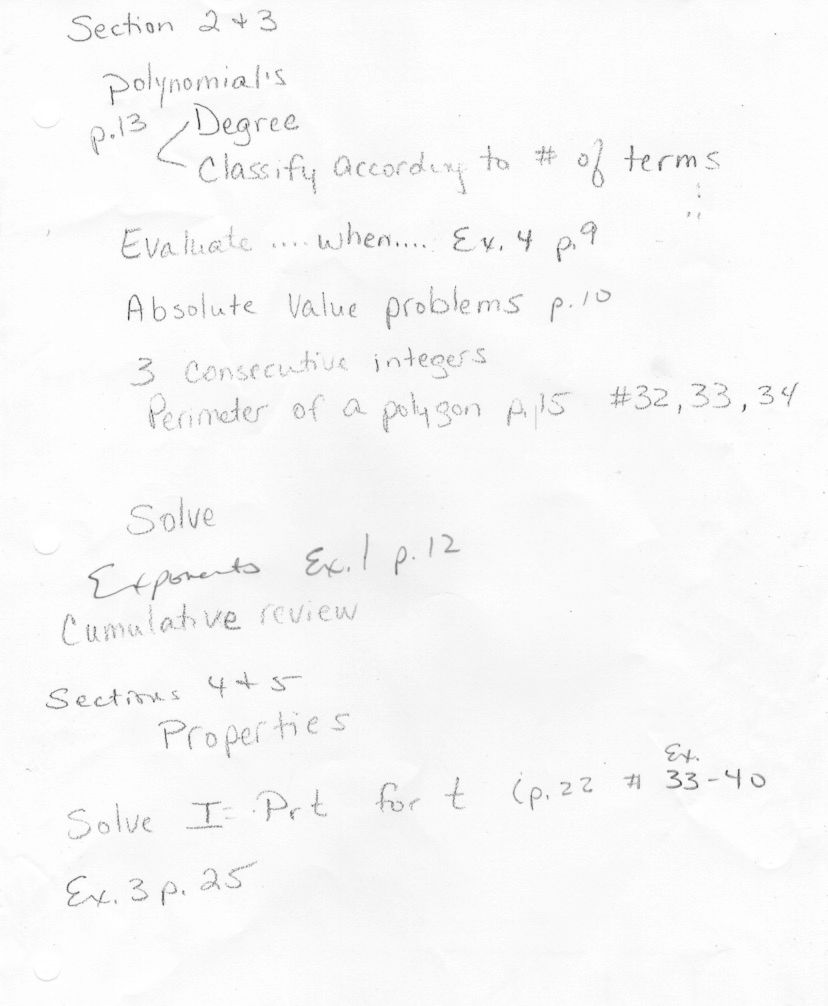 Section 2 + 3
polynomial's
p.13 Degree
Classify according to # of terms
Evaluate .... when.... Ex. 4 p.9
Absolute Value problems p.10
3 consecutive integers
Perimeter of a polygon p.15 #32, 33, 34
Solve
Exponents Ex. 1 p. 12
Cumulative review
Sections 4 + 5
Properties
Ex.
Solve I = Prt for t (p. 22 # 33-40
Ex. 3 p. 25